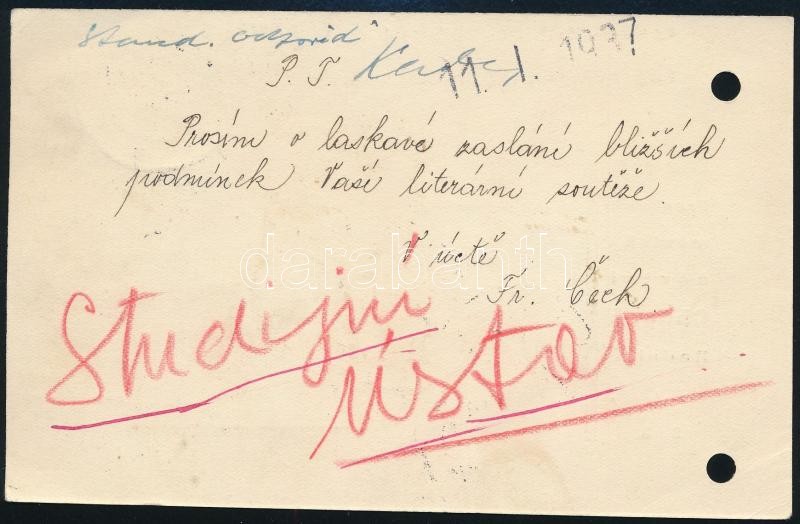 stand. odpověď
P. T.
11. I. 1937
Prosím o laskavé zaslání bližších
podmínek Vaší literární soutěže.
V úctě
Fr. Čech
Studijní
ústav
darabanth